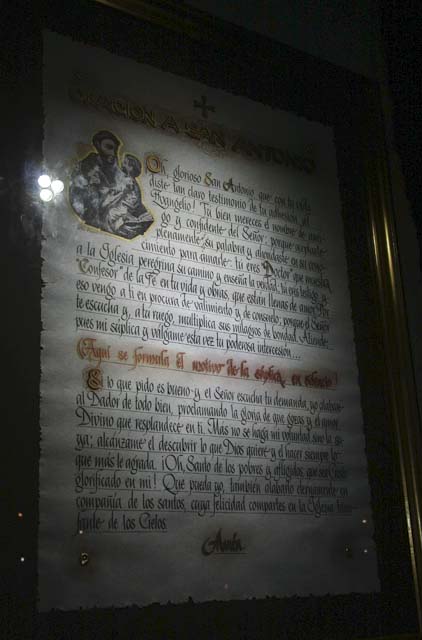 ORACION A SAN ANTONIO
Oh, glorioso San Antonio, que con tu vida
diste tan claro testimonio de tu adhesión al
Evangelio! Tu bien mereces el nombre de ami-
go y confidente del Señor, porque aceptaste
plenamente su palabra y ahondaste en su cono-
cimiento para amarle: tu eres "Doctor" que muestra
a la Iglesia peregrina su camino y enseña la verdad; tu eres testigo y
"Confesor" de la Fe en tu vida y obras, que están llenas de amor. Por
eso vengo a ti en procura de valimiento y de consuelo; porque el Señor
te escucha y, a tu ruego, multiplica sus milagros de bondad. Atiende,
pues mi súplica y válgame esta vez tu poderosa intercesión...
(Aquí se formula el motivo de la súplica, en silencio)
Si lo que pido es bueno y el Señor escucha tu demanda, yo alabaré
al Dador de todo bien, proclamando la gloria de que gozas y el amor
Divino que resplandece en ti. Mas no se haga mi voluntad sino la su-
ya; alcánzame el descubrir lo que Dios quiere y el hacer siempre lo
que más le agrada. ¡Oh, Santo de los pobres y afligidos, que sea Cristo
glorificado en mí! Que pueda yo, también alabarlo eternamente en
compañía de los santos, cuya felicidad compartes en la Iglesia triun-
fante de los Cielos.
Amén